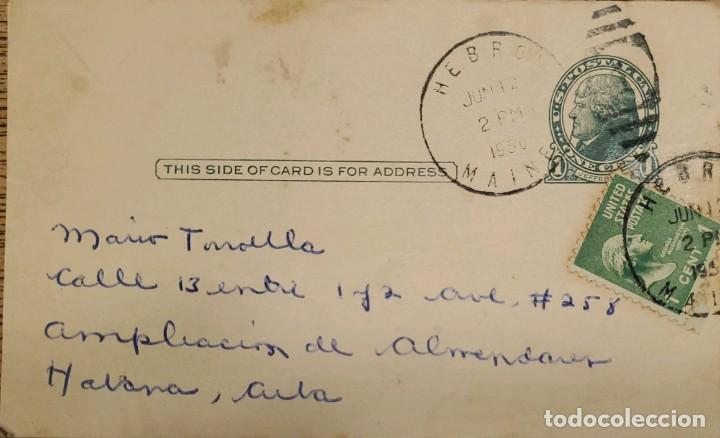 HEBRON
JUN 12
2 PM
1950
MAINE
U.S. POSTAL CARD
ONE CENT
JEFFERSON
THIS SIDE OF CARD IS FOR ADDRESS
HEBR
JUN 1
2 P
195
MAI
UNITED
STATES
POSTAGE
1 CENT 1
Mario Torrella
Calle 13 entre 1 y 2 Ave. #258
Ampliacion de Almendares
Habana, Cuba
todocoleccion